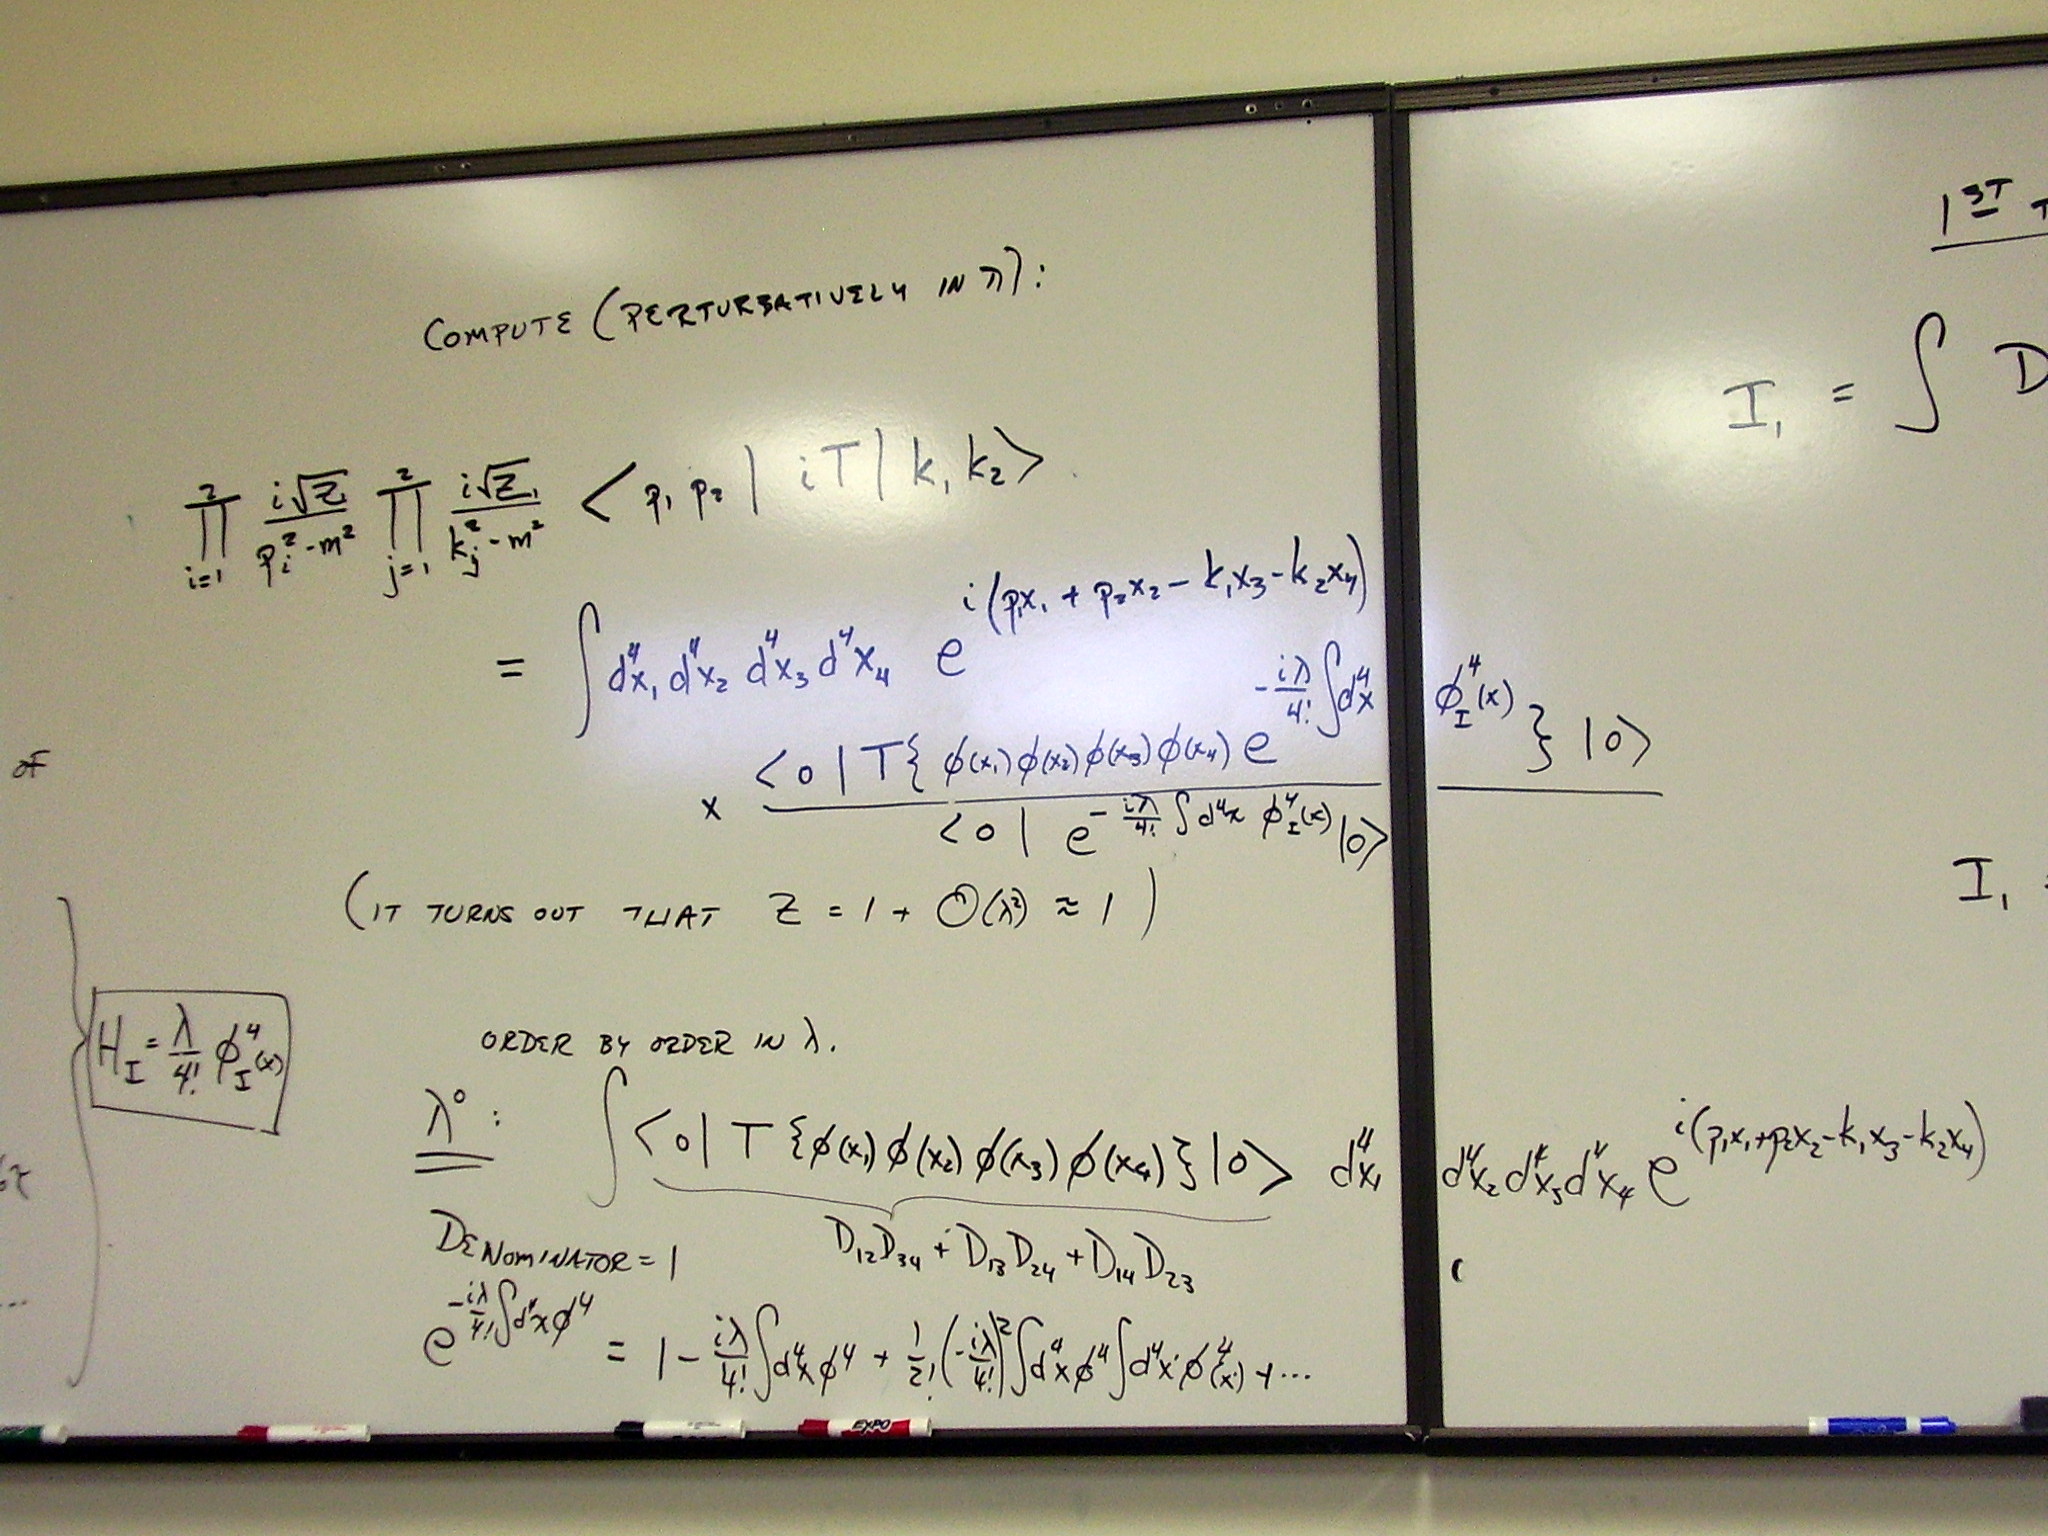 COMPUTE (PERTURBATIVELY IN λ):
∏_{i=1}^{2} i√Z / (p_i² - m²) ∏_{j=1}^{2} i√Z / (k_j² - m²) <p₁ p₂ | iT | k₁ k₂>
= ∫ d⁴x₁ d⁴x₂ d⁴x₃ d⁴x₄ e^{i(p₁x₁ + p₂x₂ - k₁x₃ - k₂x₄)}
× <0| T{ φ(x₁) φ(x₂) φ(x₃) φ(x₄) e^{-iλ/4! ∫d⁴x φ_I⁴(x)} } |0>
<0| e^{-iλ/4! ∫d⁴x φ_I⁴(x)} |0>
(IT TURNS OUT THAT Z = 1 + O(λ²) ≈ 1)
ORDER BY ORDER IN λ.
λ⁰: ∫ <0| T {φ(x₁) φ(x₂) φ(x₃) φ(x₄)} |0> d⁴x₁ d⁴x₂ d⁴x₃ d⁴x₄ e^{i(p₁x₁+p₂x₂-k₁x₃-k₂x₄)}
D₁₂D₃₄ + D₁₃D₂₄ + D₁₄D₂₃
DENOMINATOR = 1
e^{-iλ/4! ∫d⁴x φ⁴} = 1 - iλ/4! ∫d⁴x φ⁴ + 1/2! (-iλ/4!)² ∫d⁴x φ⁴ ∫d⁴x' φ⁴(x') + ...
OF
H_I = λ/4! φ_I⁴(x)
...
1ST
I₁ = ∫ D
I₁ =
EXPO